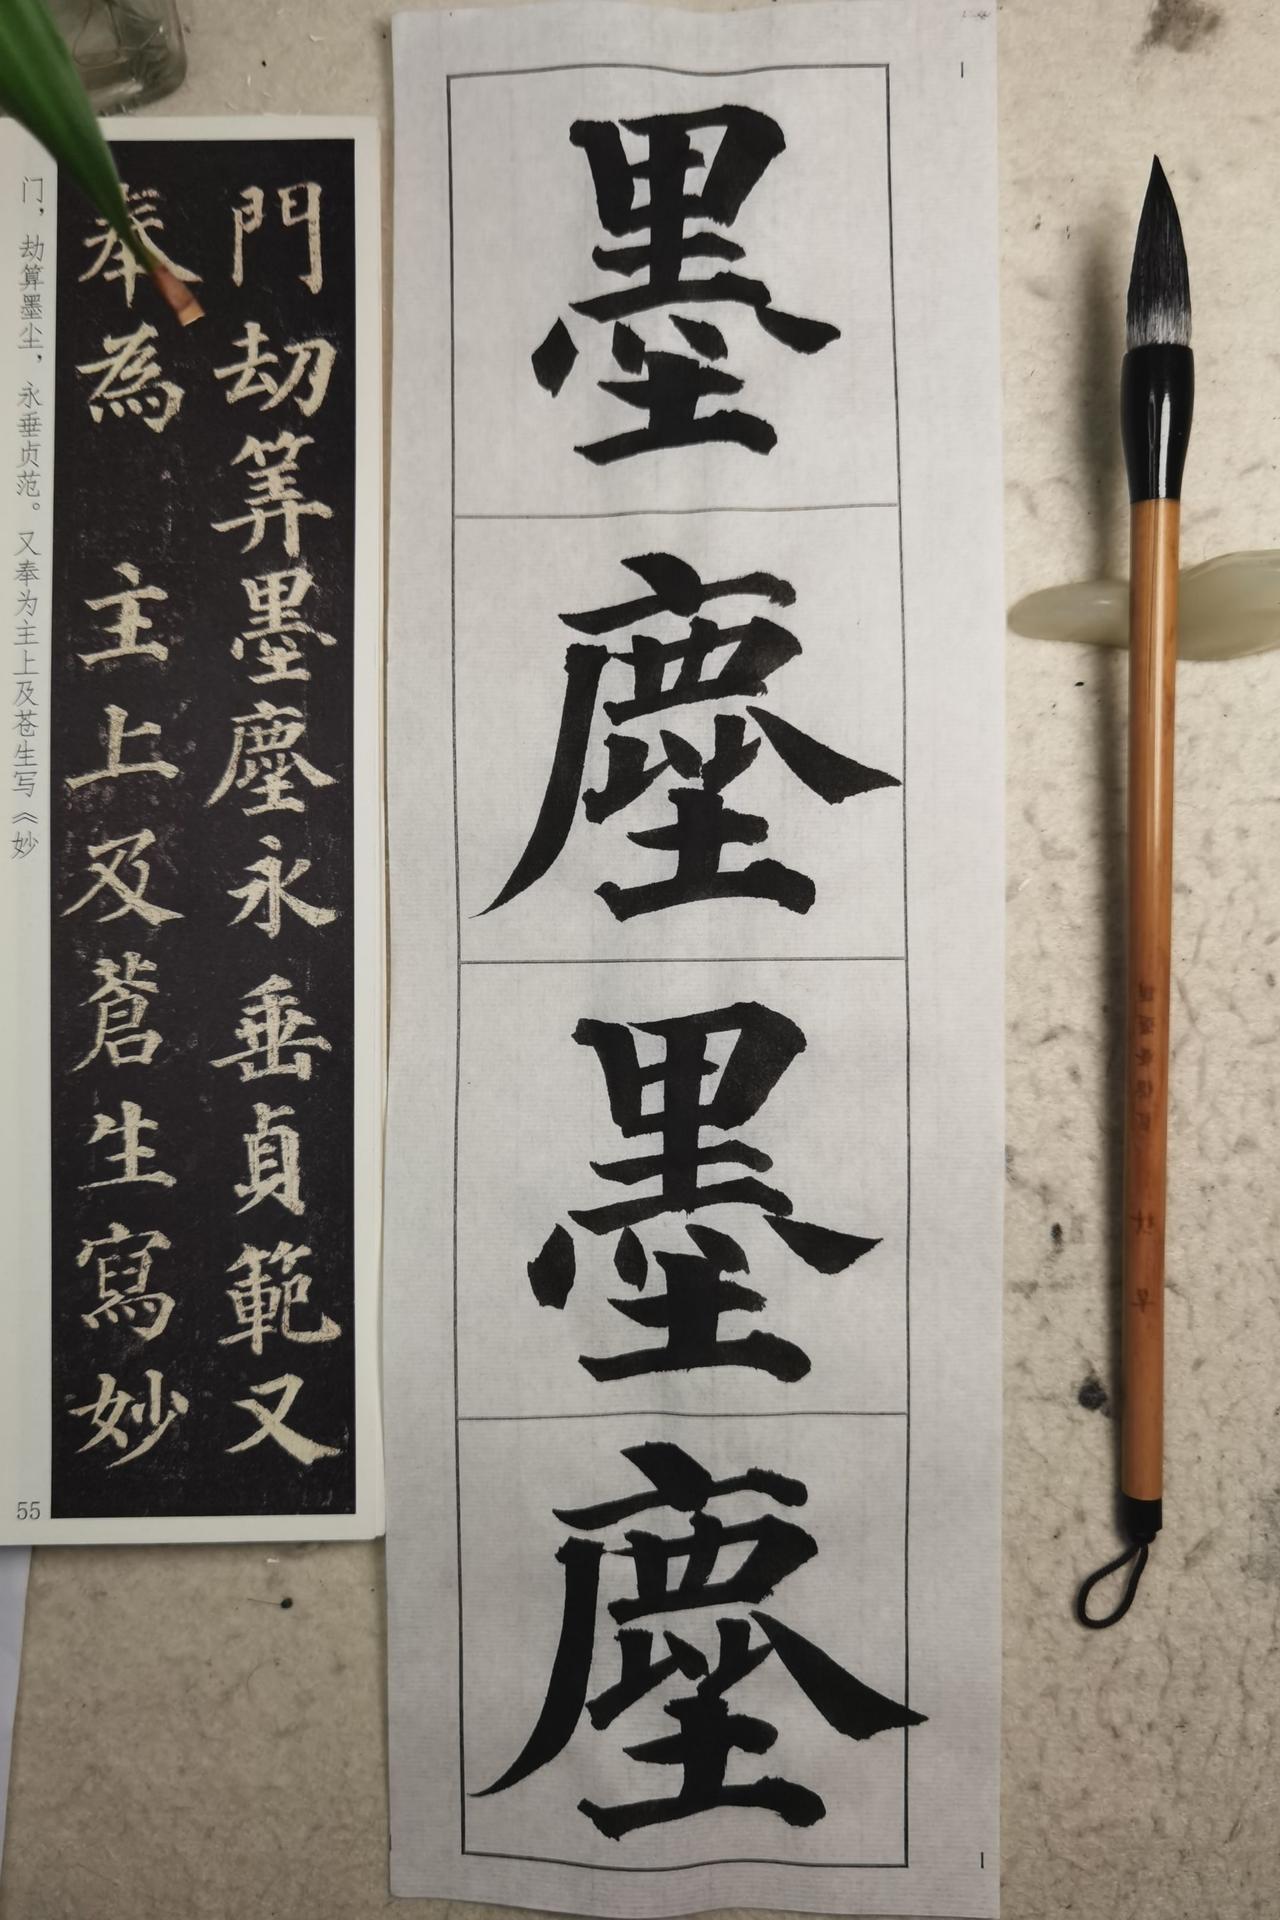 墨塵墨塵
門劫筭墨塵永垂貞範又
奉為 主上及蒼生寫妙
门，劫算墨尘，永垂贞范。又奉为主上及苍生写《妙
55